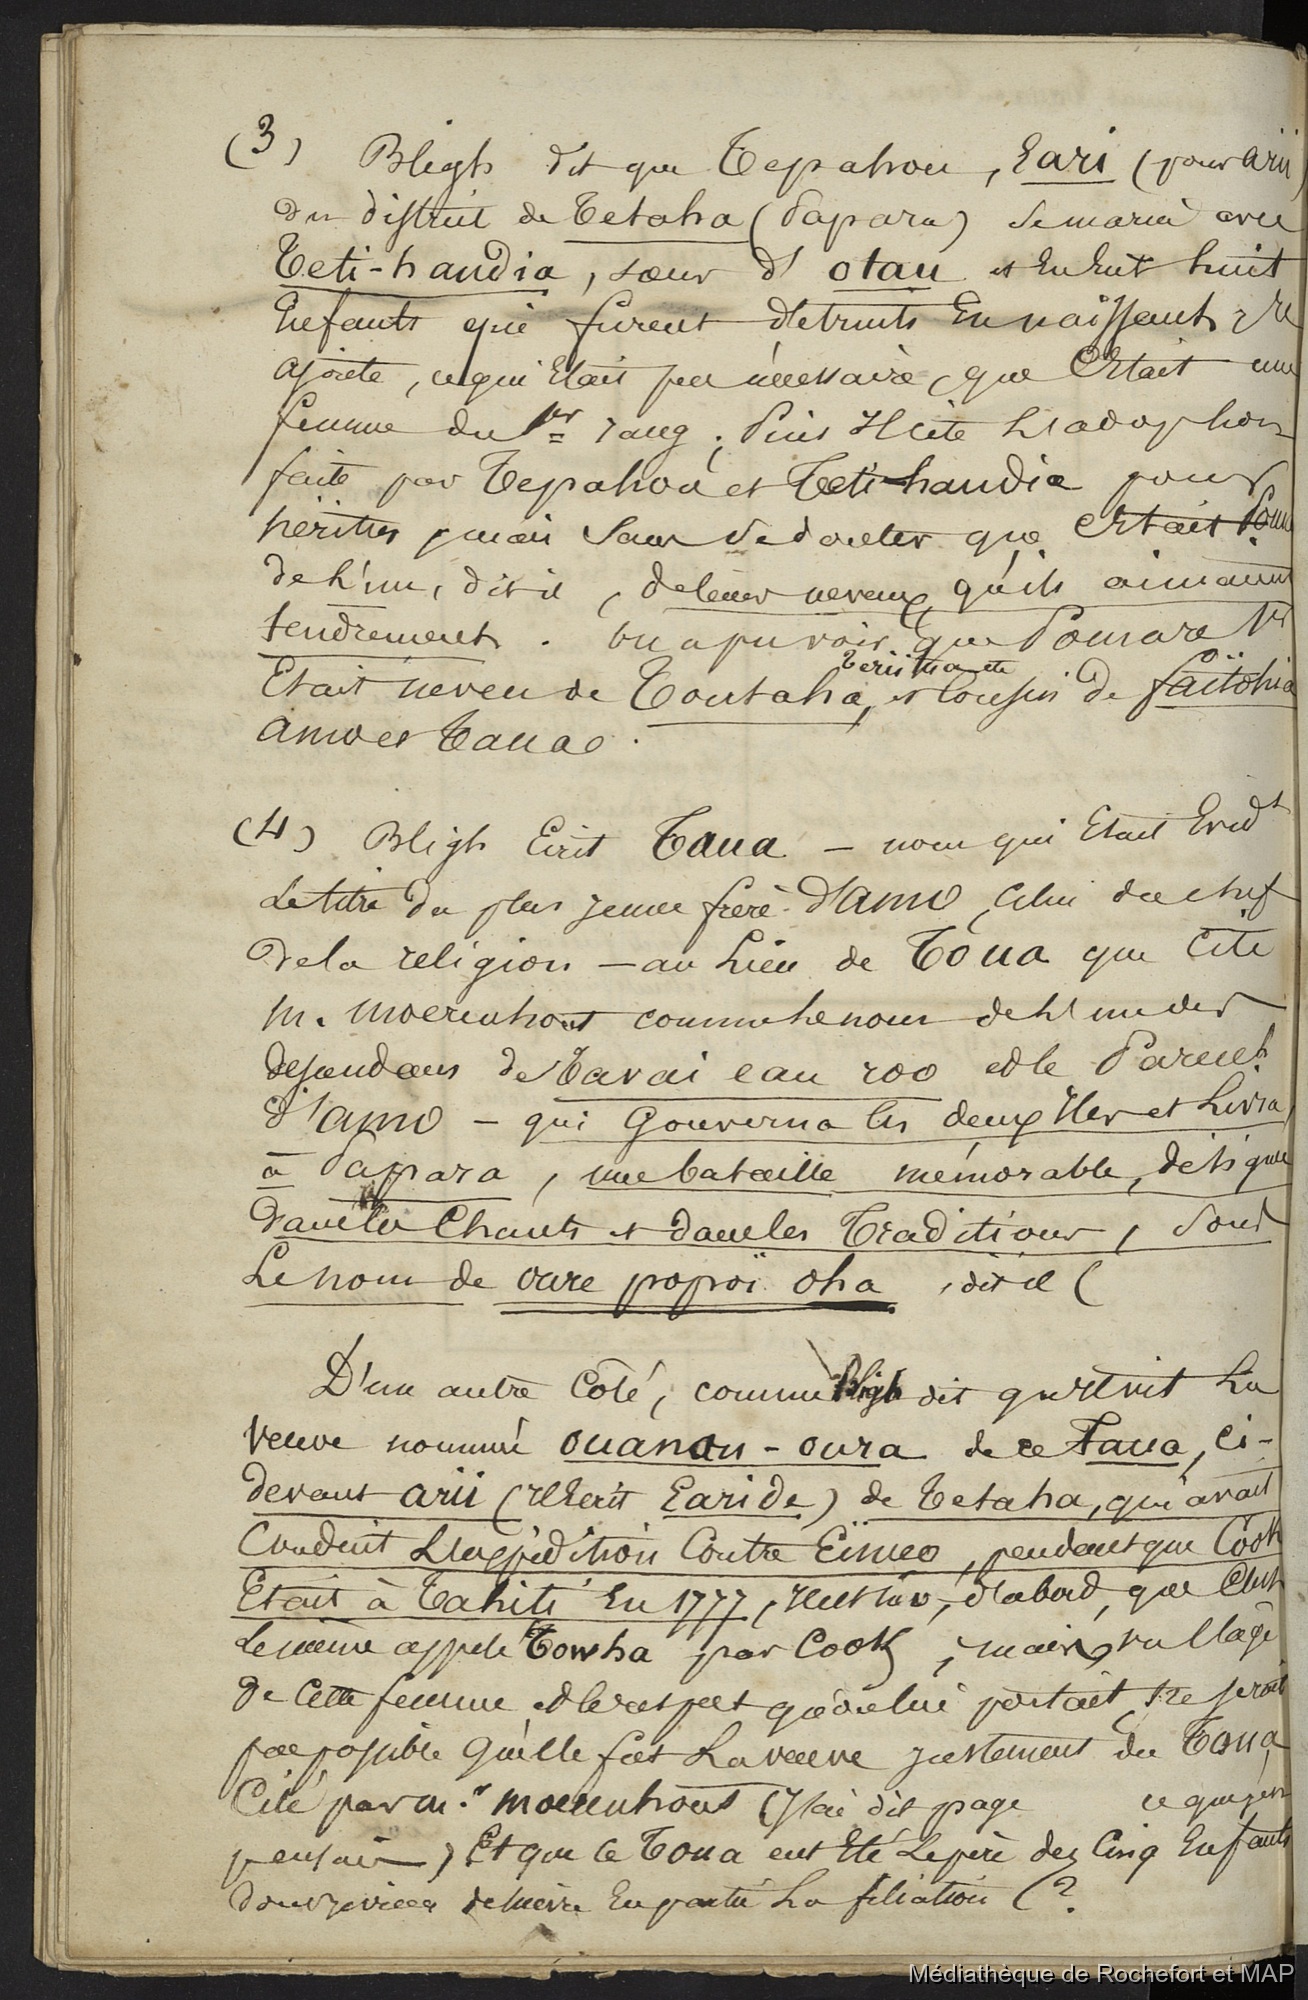 (3) Bligh dit que Tepahou, Eari (pour arii)
du district de Tetaha (Papara) se maria avec
Teti-handia, sœur d'otau et en eut huit
Enfants qui furent détruits En naissant ; Il
ajoute, ce qui Etait peu nécessaire, que C'Etait une
femme du 1er rang. Puis Il cite L'adoption
faite par Tepahou et Teti-handia pour
héritier, mais sans se douter que C'Etait Pom
de L'un, dit il, de leurs neveux qu'ils aimaient
tendrement. On a pu voir que Pomare 1er
Etait neveu de Toutaha, et Cousin de Teriimaete faïtohia
amo et Tauao.
(4) Bligh Ecrit Taua – nom qui Etait Evidt
Le titre du plus jeune frère d'amo, Celui du chef
de la religion – au Lieu de Toua que Cite
m. moerenhout comme le nom de L'un des
descendans de Tavai eau roo et le Parent
d'amo – qui Gouverna les deux Iles et Livra,
à Papara, une bataille mémorable, désignée
dans les Chants et dans les Traditions, Sous
Le nom de oure popoï oha, dit il (
D'un autre Côté, comme Bligh dit qu'Il vit La
veuve nommée ouanou-oura de ce Taua, ci-
devant arii (Il Ecrit Earide) de Tetaha, qui avait
Conduit L'expédition Contre Eïmeo, pendant que Cook
Etait à Tahiti En 1777, d'abord, que C'est
Le même appelé Towha par Cook, mais, vu L'âge
de Cette femme et le respect qu'on lui portait, Il ne serait
pas possible qu'elle fût La veuve justement du Toua
Cité par m.r moerenhout (J'ai dit page ce que j'en
pensais) Et que Ce Toua eut Eté Le père des Cinq Enfants
dont je viens de suivre En partie La filiation (?
Médiathèque de Rochefort et MAP